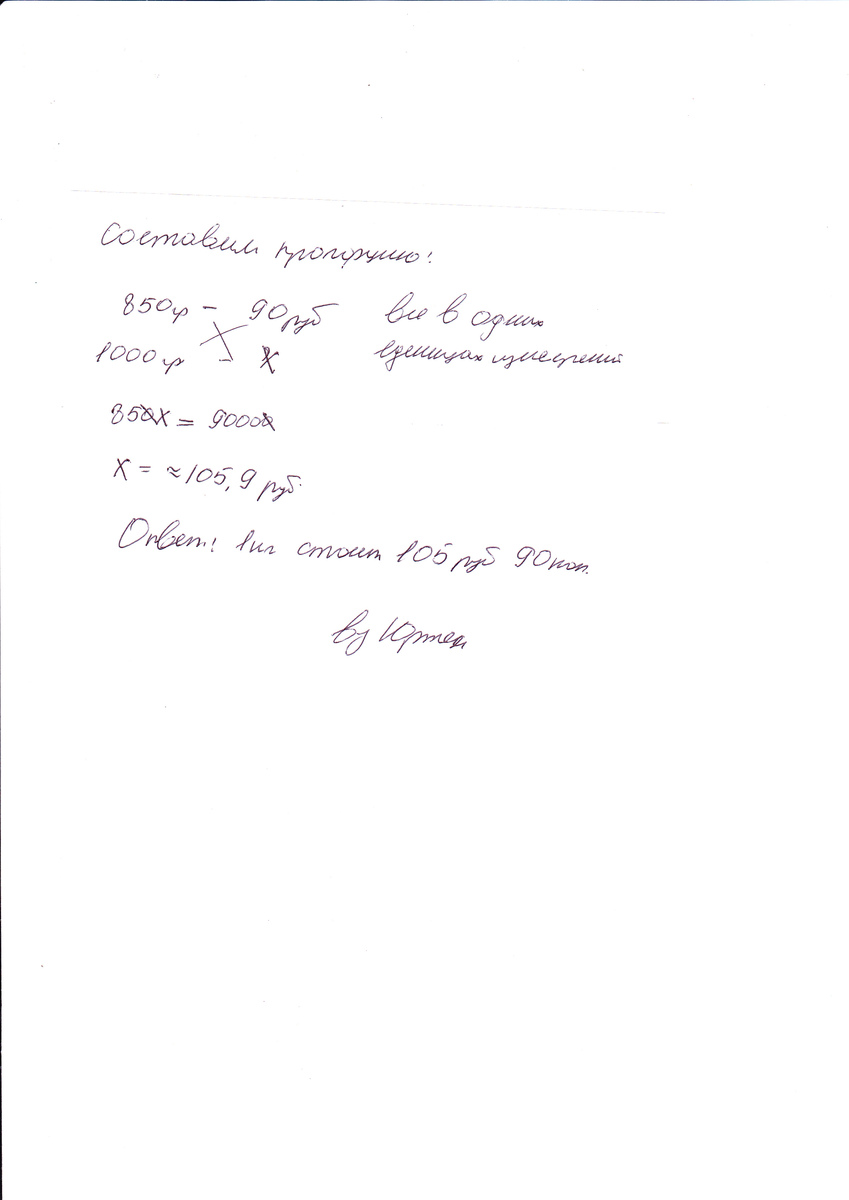 Составим пропорцию:
850гр – 90 руб все в одних
1000гр – х единицах измерений
850х = 90000
х = ≈105,9 руб.
Ответ: 1кг стоит 105 руб 90 коп.
by